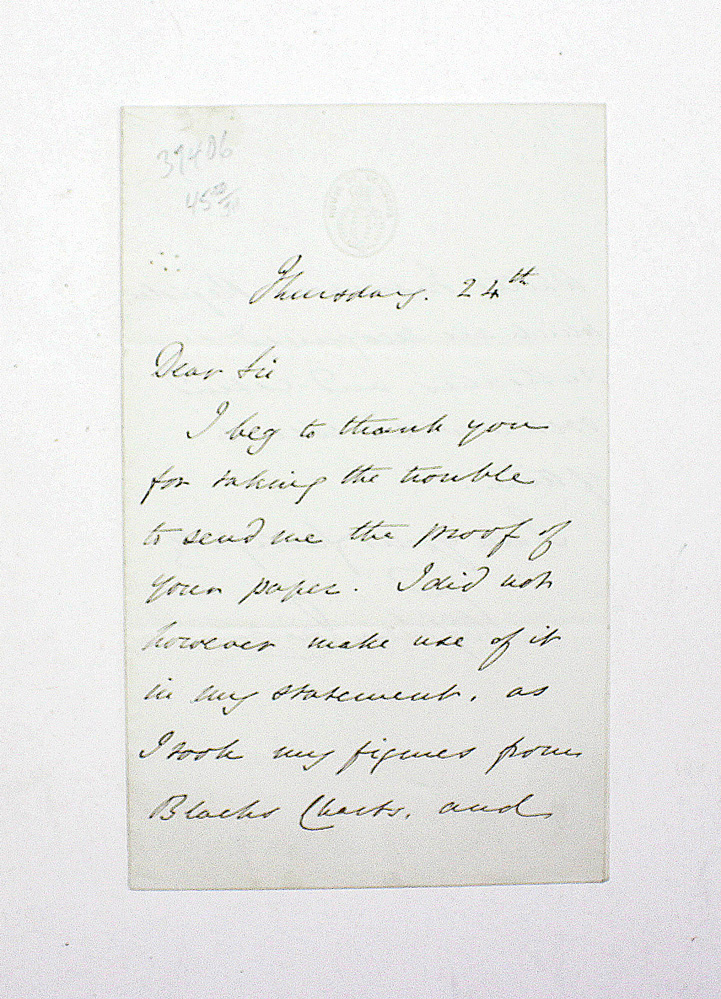 37406
45
Thursday. 24th
Dear Sir
I beg to thank you
for taking the trouble
to send me the proof of
your paper. I did not
however make use of it
in my statement, as
I took my figures from
Blacks Charts, and